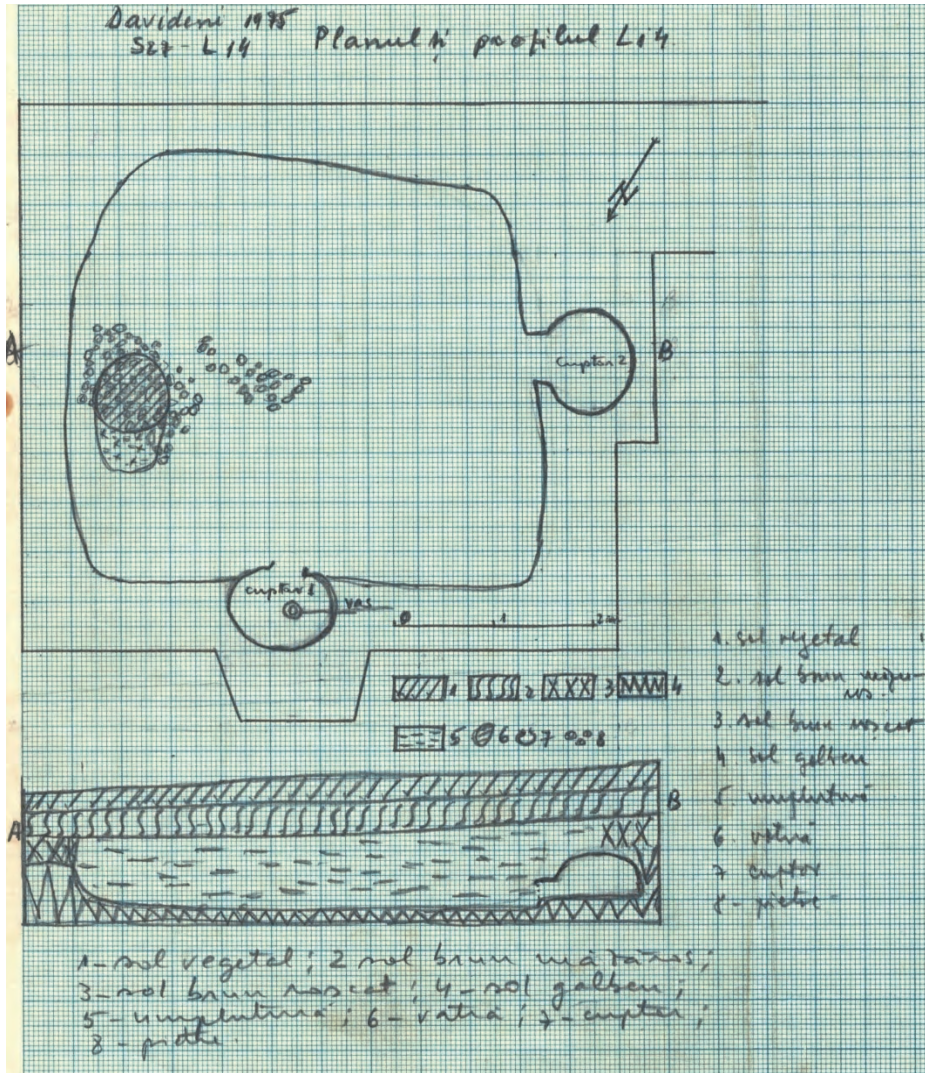 Davideni 1975
S27 - L 14 Planul și profilul L14
A
cuptor 2
B
cuptor 1
vas
0 1 2 m
1 2 3 4
5 6 7 8
1. sol vegetal
2. sol brun
3. sol brun roșcat
4 sol galben
5 umplutură
6 vatră
7 cuptor
8 - pietre
A
B
1 - sol vegetal; 2 sol brun măzăros;
3 - sol brun roșcat; 4 - sol galben;
5 - umplutură; 6 - vatră; 7 - cuptor;
8 - pietre.